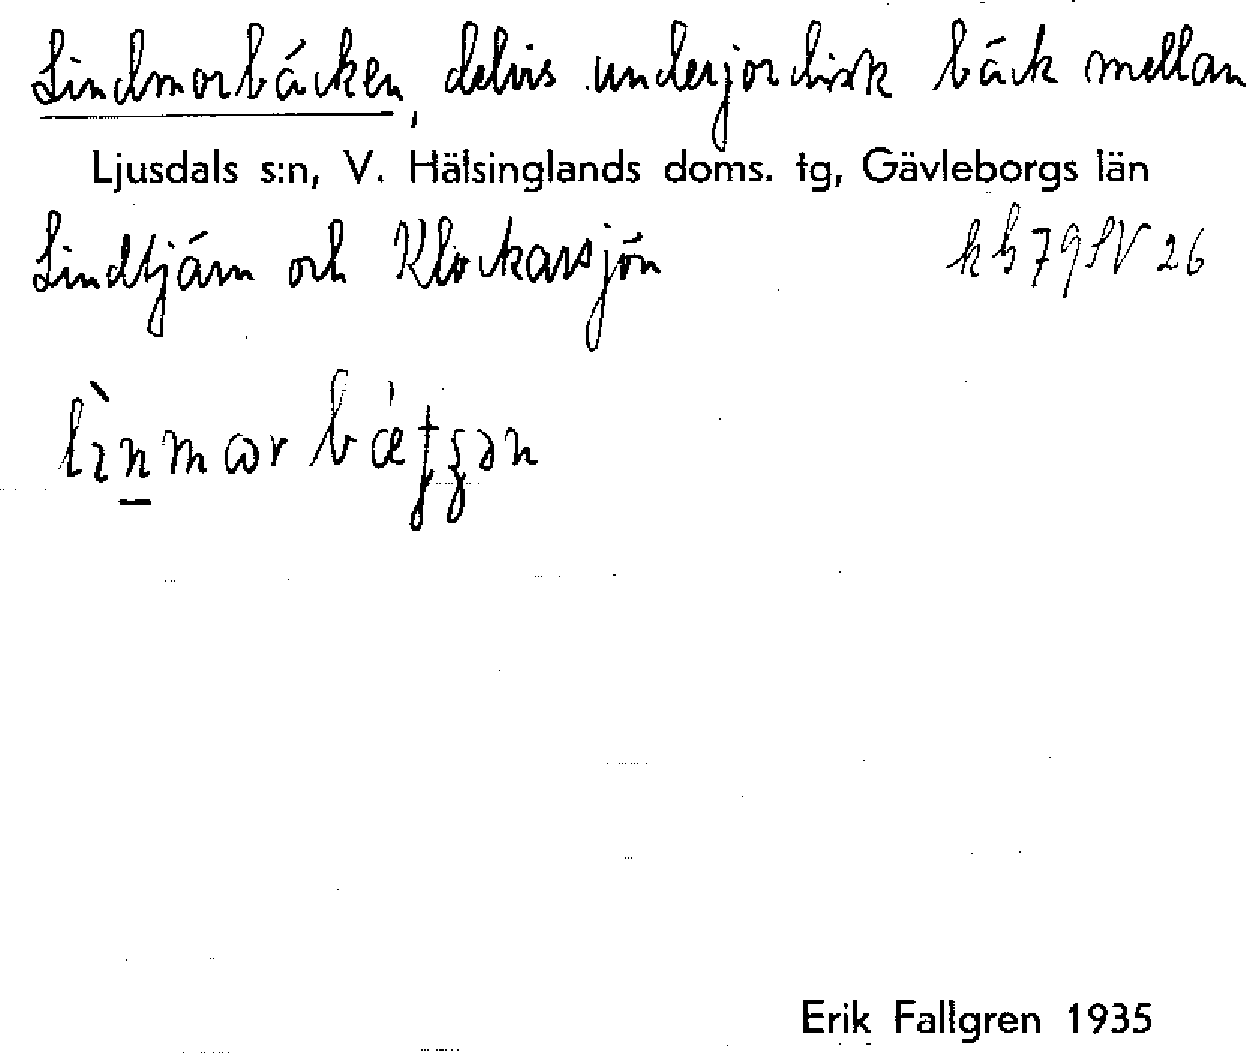 Lindmorbäcken, delvis underjordisk bäck mellan
Ljusdals s:n, V. Hälsinglands doms. tg, Gävleborgs län
Lindtjärn och Klockarsjön
kb 79 SV 26
Erik Fallgren 1935